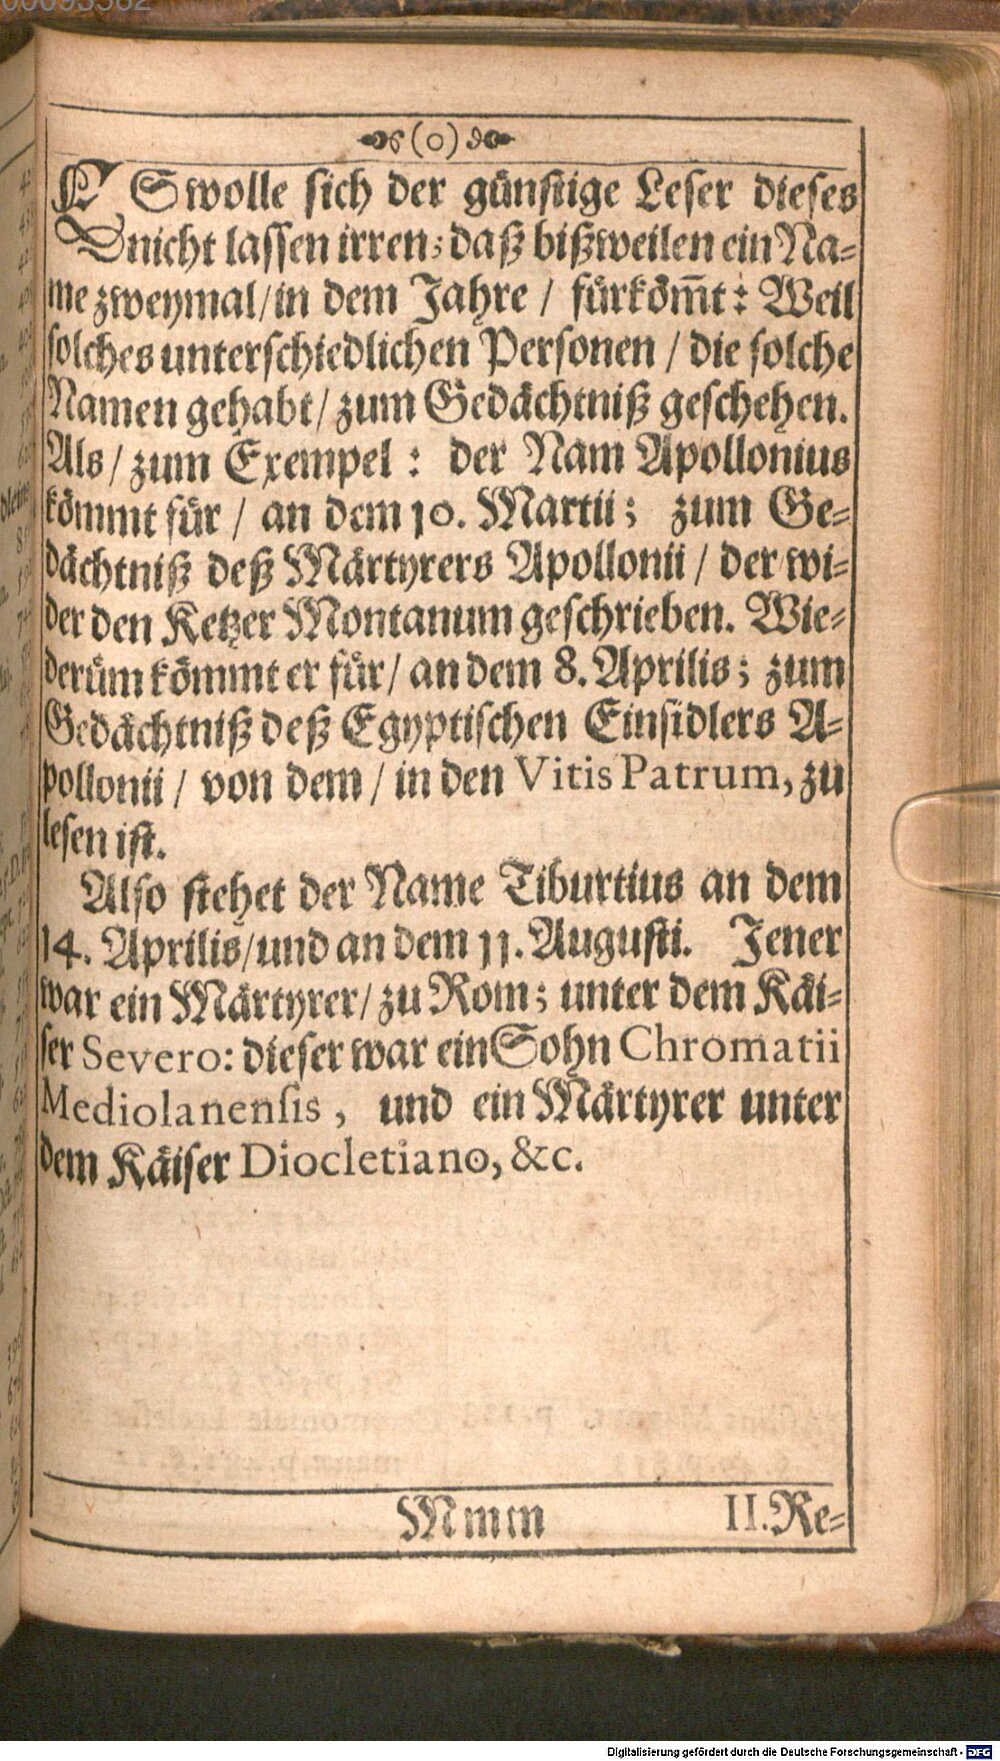 00093582
(o)
ES wolle sich der günstige Leser dieses
nicht lassen irren; daß bißweilen ein Na-
me zweymal/in dem Jahre / fürköm̃t: Weil
solches unterschiedlichen Personen / die solche
Namen gehabt/ zum Gedächtniß geschehen.
Als / zum Exempel : der Nam Apollonius
kömmt für / an dem 10. Martii; zum Ge-
dächtniß deß Märtyrers Apollonii / der wi-
der den Ketzer Montanum geschrieben. Wie-
derüm kömmt er für/ an dem 8. Aprilis; zum
Gedächtniß deß Egyptischen Einsidlers A-
pollonii / von dem / in den Vitis Patrum, zu
lesen ist.
Also stehet der Name Tiburtius an dem
14. Aprilis/und an dem 11. Augusti. Jener
war ein Märtyrer/ zu Rom; unter dem Käi-
ser Severo: dieser war ein Sohn Chromatii
Mediolanensis, und ein Märtyrer unter
dem Käiser Diocletiano, &c.
Mmm
II. Re-
Digitalisierung gefördert durch die Deutsche Forschungsgemeinschaft - DFG